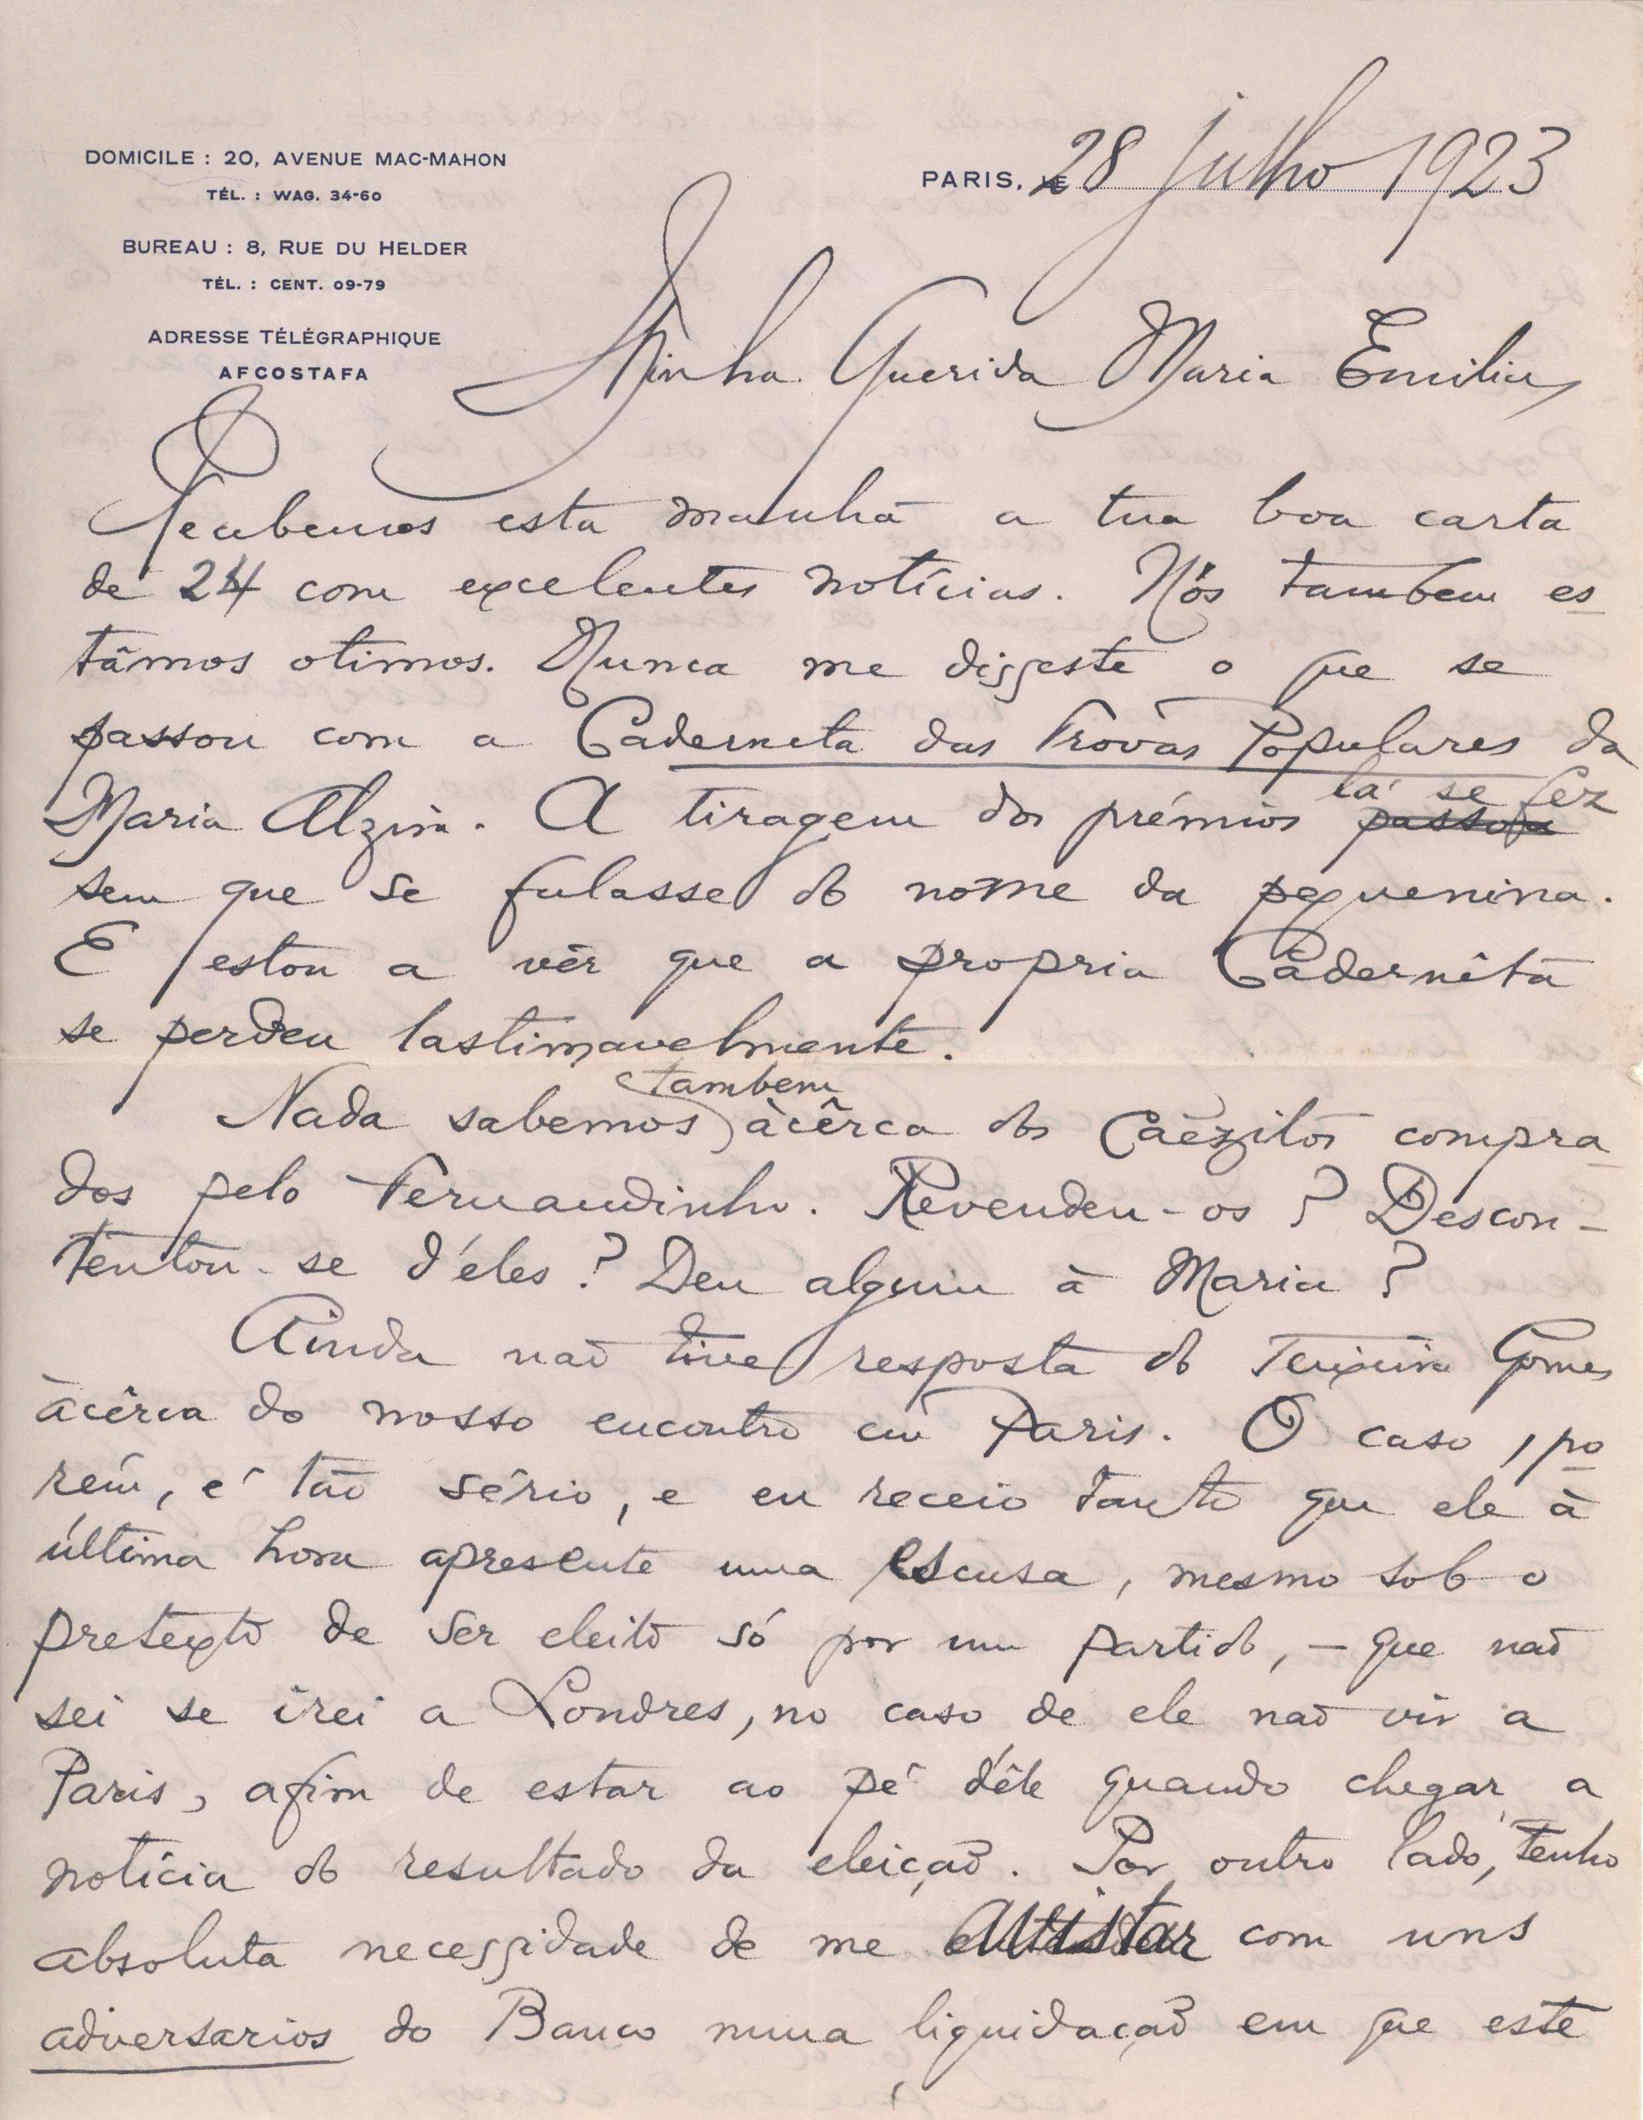 DOMICILE : 20, AVENUE MAC-MAHON
TÉL. : WAG. 34-60
BUREAU : 8, RUE DU HELDER
TÉL. : CENT. 09-79
ADRESSE TÉLÉGRAPHIQUE
AFCOSTAFA
PARIS, LE 28 julho 1923
Minha Querida Maria Emilia,
Recebemos esta manhã a tua boa carta
de 24 com excelentes notícias. Nós tambem es
tâmos otimos. Nunca me disseste o que se
passou com a Caderneta das Trovas Populares da
Maria Alzira. A tiragem dos prémios passou lá se fez
sem que se falasse do nome da pequenina.
E estou a vêr que a propria Cadernêta
se perdeu lastimavelmente.
Nada sabemos tambem àcêrca dos Cãezitos compra
dos pelo Fernandinho. Revendeu-os? Descon-
tentou-se d'éles? Deu algum à Maria?
Ainda não tive resposta do Teixeira Gomes
àcêrca do nosso encontro em Paris. O caso, po
rém, é tão sério, e eu receio tanto que ele à
última hora apresente uma escusa, mesmo sob o
pretexto de ser eleito só por um partido, - que não
sei se irei a Londres, no caso de ele não vir a
Paris, afim de estar ao pé dêle quando chegar a
notícia do resultado da eleição. Por outro lado, tenho
absoluta necessidade de me avistar com uns
adversarios do Banco numa liquidação em que este